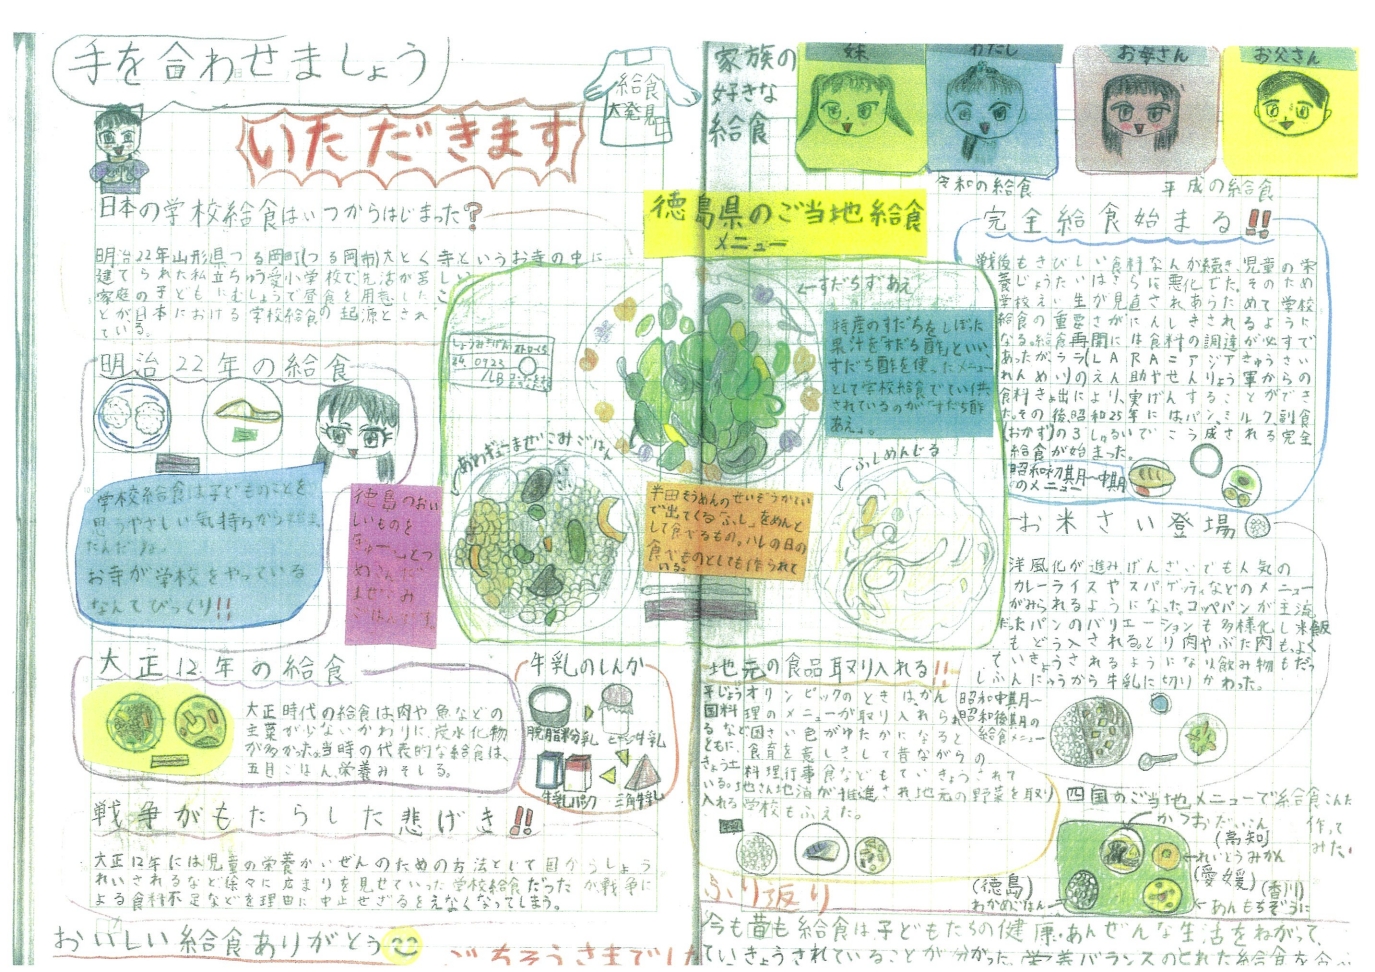 手を合わせましょう
いただきます
給食
大発見
日本の学校給食はいつからはじまった?
明治22年山形県つる岡町(つる岡市)大とく寺というお寺の中に
建てられた私立ちゅう愛小学校で、生活が苦しい
家庭の子どもにむしょうで昼食を用意したこ
とが日本における学校給食の起源とされ
ている。
明治22年の給食
学校給食は子どものことを
思うやさしい気持ちから始ま
たんだね。
お寺が学校をやっている
なんてびっくり!!
大正12年の給食
大正時代の給食は、肉や魚などの
主菜が少ないかわりに、炭水化物
が多かった。当時の代表的な給食は、
五目ごはん、栄養みそしる。
牛乳のしんか
脱脂粉乳
ビン牛乳
牛乳パック
三角牛乳
戦争がもたらした悲げき!!
大正12年には児童の栄養かいぜんのための方法として国からしょう
れいされるなど徐々に広まりを見せていった学校給食だったが戦争に
よる食料不足などを理由に中止せざるをえなくなってしまう。
おいしい給食ありがとう
ごちそうさまでした
徳島県のご当地給食
メニュー
←すだちずあえ
特産のすだちをしぼった
果汁を「すだち酢」といい、
すだち酢を使ったメニュー
として学校給食でてい供
されているのが「すだち酢
あえ」。
あわぎゅーまぜこみごはん
徳島のおい
しいものを
ぎゅーっとつ
めこんだ
まぜこみ
ごはんです
ふしめんじる
半田そうめんのせいぞうかてい
で出てくる「ふし」をめんと
して食べるもの。ハレの日の
食べものとしても作られて
いる。
家族の
好きな
給食
妹
わたし
お母さん
お父さん
令和の給食
平成の給食
完全給食始まる!!
戦後もきびしい食料なんが続き、児童の栄
養じょうたいはさらに悪化した。そのため
学校えい生が見直されあらためて学校
給食の重要さがにんしきされるように
なる。給食再開には食料の調達が必すで
あったがララ(LARA=アジアきゅうさい
れんめい)のえん助やせんりょう軍からの
食料き出により、実げんすることができ
た。その後、昭和25年にはパン、ミルク、副食
(おかず)の3しゅるいでこう成される完全
給食が始まった。
昭和初期〜中期
のメニュー
お米さい登場
洋風化が進みげんざいでも人気の
カレーライスやスパゲティなどのメニュー
がみられるようになった。コッペパンが主流
だったパンのバリエーションも多様化し米飯
もどう入される。とり肉やぶた肉もよく
ていきょうされるようになり飲み物もだっ
しふんにゅうから牛乳に切りかわった。
昭和中期〜
昭和後期の
給食メニュー
地元の食品取り入れる!!
平じょうオリンピックのときは、かん
国料理のメニューが取り入れられ
るなど国さい色がゆたかになると
ともに、食育を意しきして昔ながらの
きょう土料理行事食などもていきょうされて
いる。地さん地消が推進され地元の野菜を取り
入れる学校もふえた。
四国のご当地メニューで給食こんだ
作って
みたい
かつおだいこん
(高知)
れいとうみかん
(愛媛)
(香川)
あんもちぞうに
(徳島)
わかめごはん
ふり返り
今も昔も給食は子どもたちの健康・あんぜんな生活をねがって、
ていきょうされていることが分かった。栄養バランスのとれた給食を